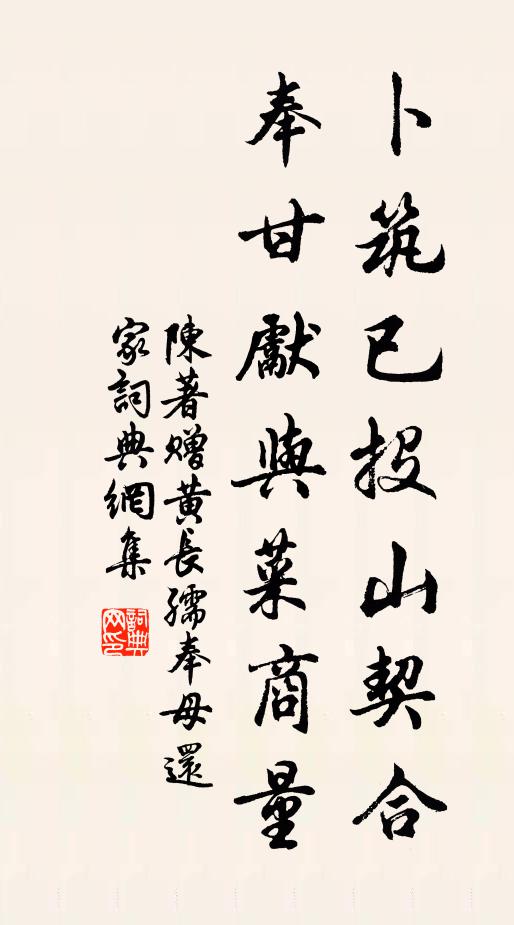 卜筑已投山契合
奉甘獻與菜商量
陳著贈黃長孺奉母還
家詞典網集
詞典
网印